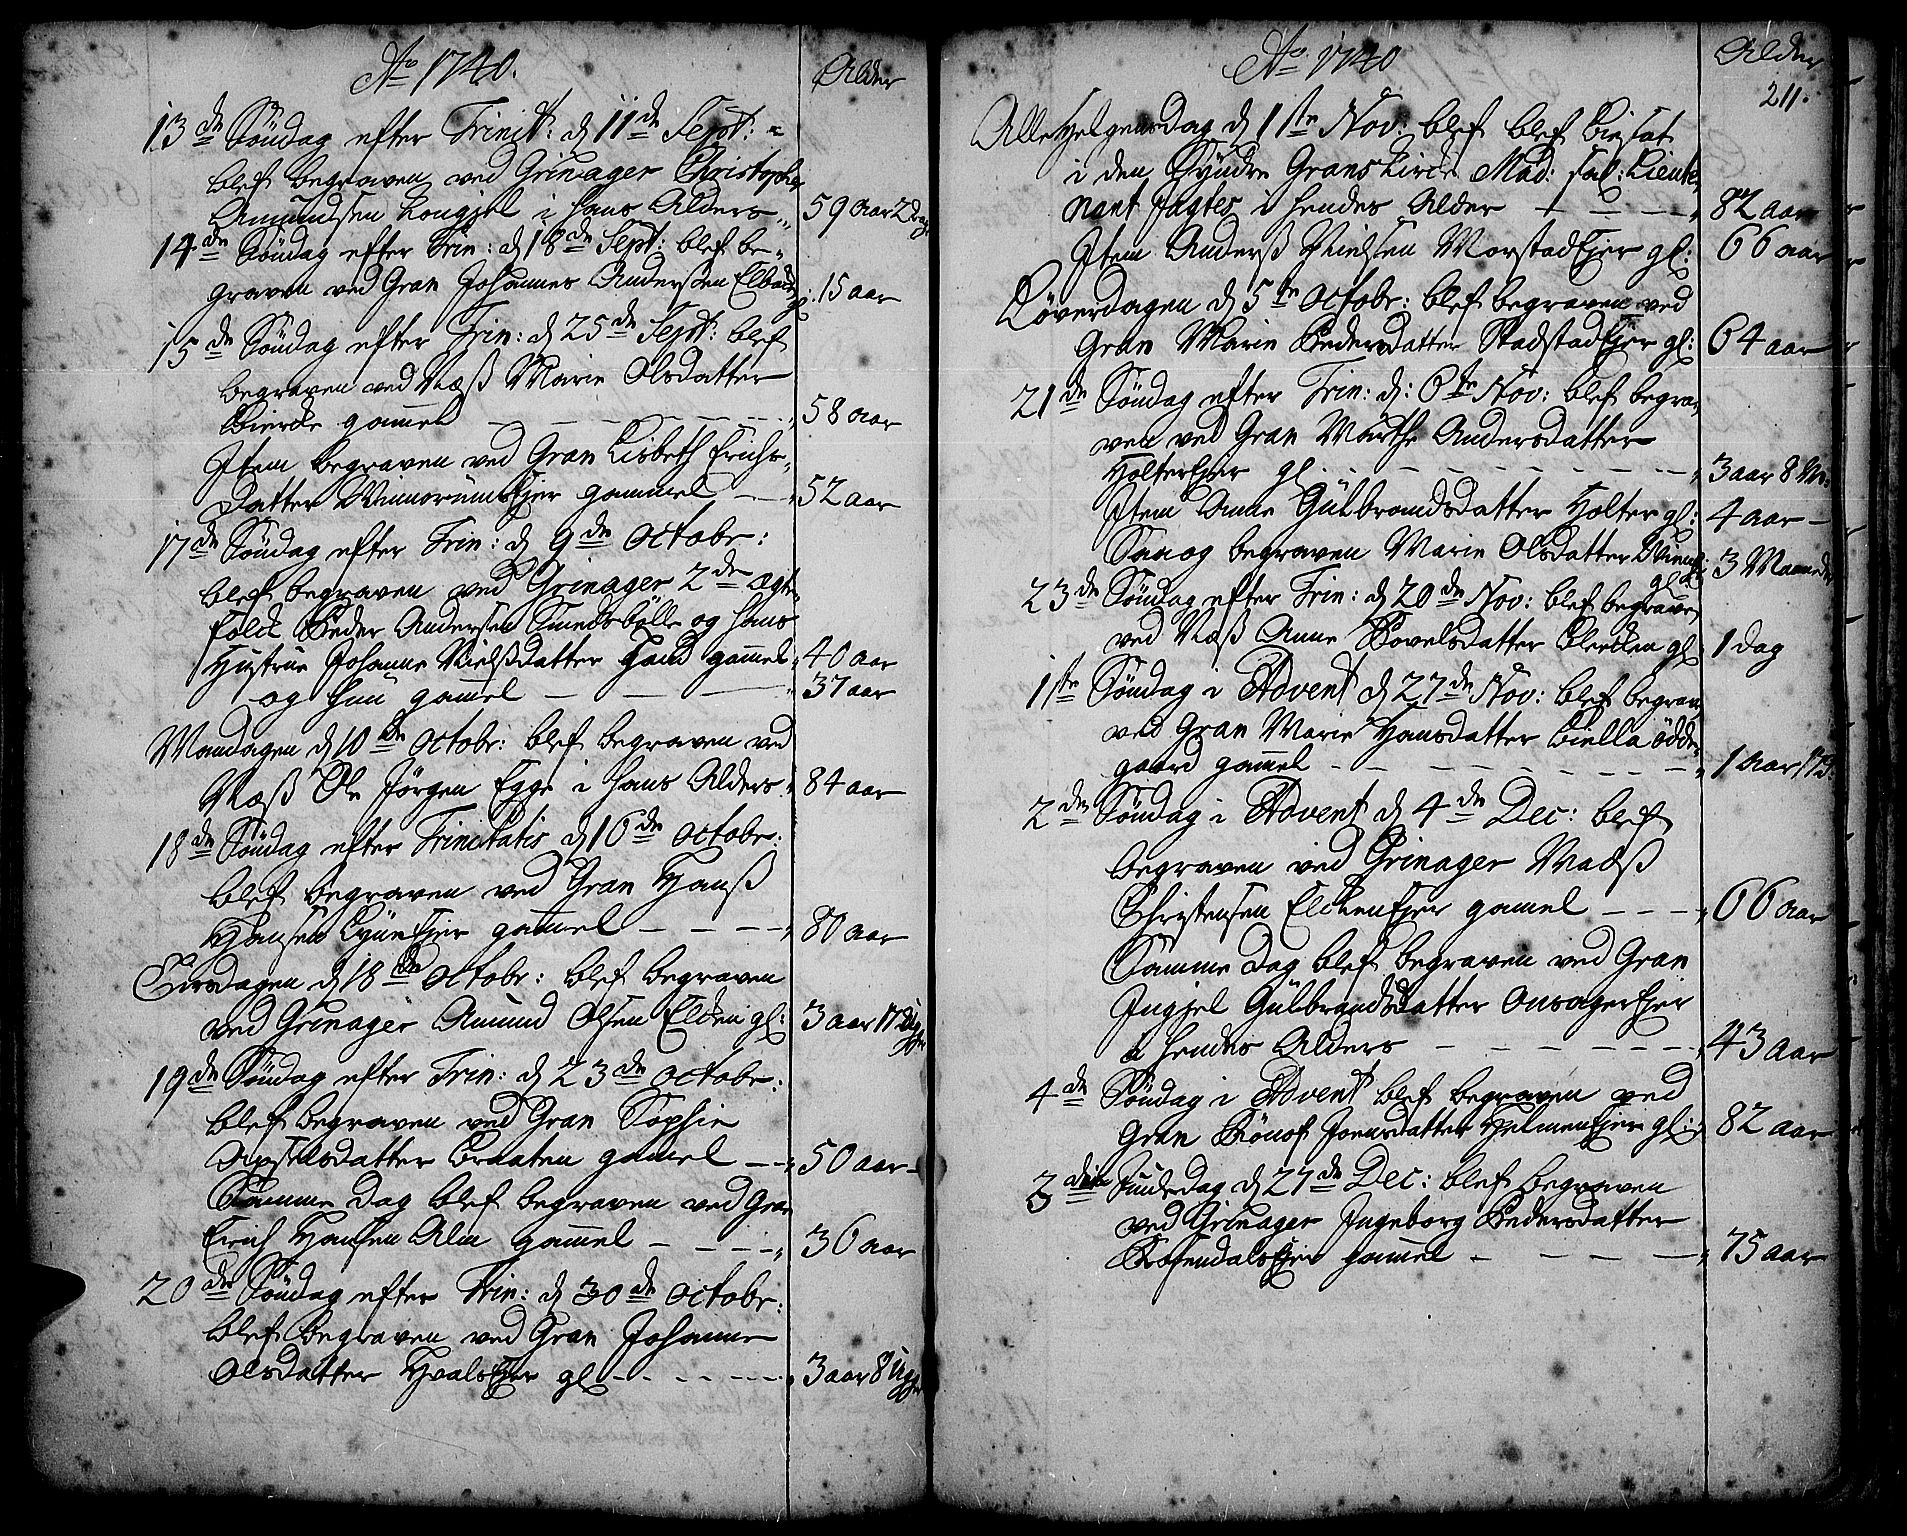 Ao 1740.
Alder
13de Søndag efter Trinit: d 11de Sept:
blef begraven ved Grinager Christopher
Amundsen Longjel i hans Alders 59 aar 2 Dage
14de Søndag efter Trin: d 18de Sept: blef be-
graven ved Gran Johannes Andersen 15 aar
15de Søndag efter Trin: d 25de Sept: blef
begraven ved Næss Marie Olsdatter
Bierke gammel 58 aar
Item begraven ved Gran Lisbeth Erichs-
datter gammel 52 aar
17de Søndag efter Trin: d 9de Octobr:
blef begraven ved Grinager 2de Ægte
folck Peder Andersen Smedsbølle og hans
Hustrue Johanne Nielsdatter hand gammel 40 aar
og hun gammel 37 aar
Mandagen d 10de Octobr: blef begraven ved
Næss Ole Jørgen Egge i hans Alders 84 aar
18de Søndag efter Trinitatis d 16de Octobr:
blef begraven ved Gran Hanss
Hansen gammel 80 aar
Tirsdagen d 18de Octobr: blef begraven
ved Grinager Amund Olsen Elden gl: 3 aar 11 Uger
19de Søndag efter Trin: d 23de Octobr:
blef begraven ved Gran Sophie
Axselsdatter Braaten gammel 50 aar
Samme Dag blef begraven ved Gran
Erich Hansen Alm gammel 36 aar
20de Søndag efter Trin: d 30de Octobr:
blef begraven ved Gran Johanne
Olsdatter Hvalsejer gl 3 aar 8 Uger
Ao 1740
Alder
211.
Alle Helgensdag d 1ste Nov: blef blef Biesat
i den Syndre Grans Kirke Mad: sal: Lieute-
nant Jagtes i hendes Alder 82 aar
Item Anders Nielsen Morstadejer gl: 66 aar
Løverdagen d 5te Octobr: blef begraven ved
Gran Marie Pedersdatter Stadstadejer gl: 64 aar
21de Søndag efter Trin: d: 6te Nov: blef begra-
ven ved Gran Marthe Andersdatter
Holterejer gl. 3 aar 8 M:
Item Anne Gulbrandsdatter Holter gl: 4 aar
Saa og begraven Marie Olsdatter gl: 3 Maaneder
23de Søndag efter Trin: d 20de Nov: blef begraven
ved Næss Anne Povelsdatter Blecken gl 1 Dag
1ste Søndag i Advent d 27de Nov: blef begraven
ved Gran Marie Hansdatter Biella ødde-
gaard gammel 1 aar
2den Søndag i Advent d 4de Dec: blef
begraven ved Grinager Madss
Christensen gammel 66 aar
Samme Dag blef begraven ved Gran
Ingjel Gulbrandsdatter Onsagerejer
i hendes Alders 43 aar
4de Søndag i Advent blef begraven ved
Gran Rønof Joensdatter Helmenejer gl: 82 aar
3die Juuledag d 27de Dec: blef begraven
ved Grinager Ingeborg Pedersdatter
Rosendalsejer gammel 75 aar